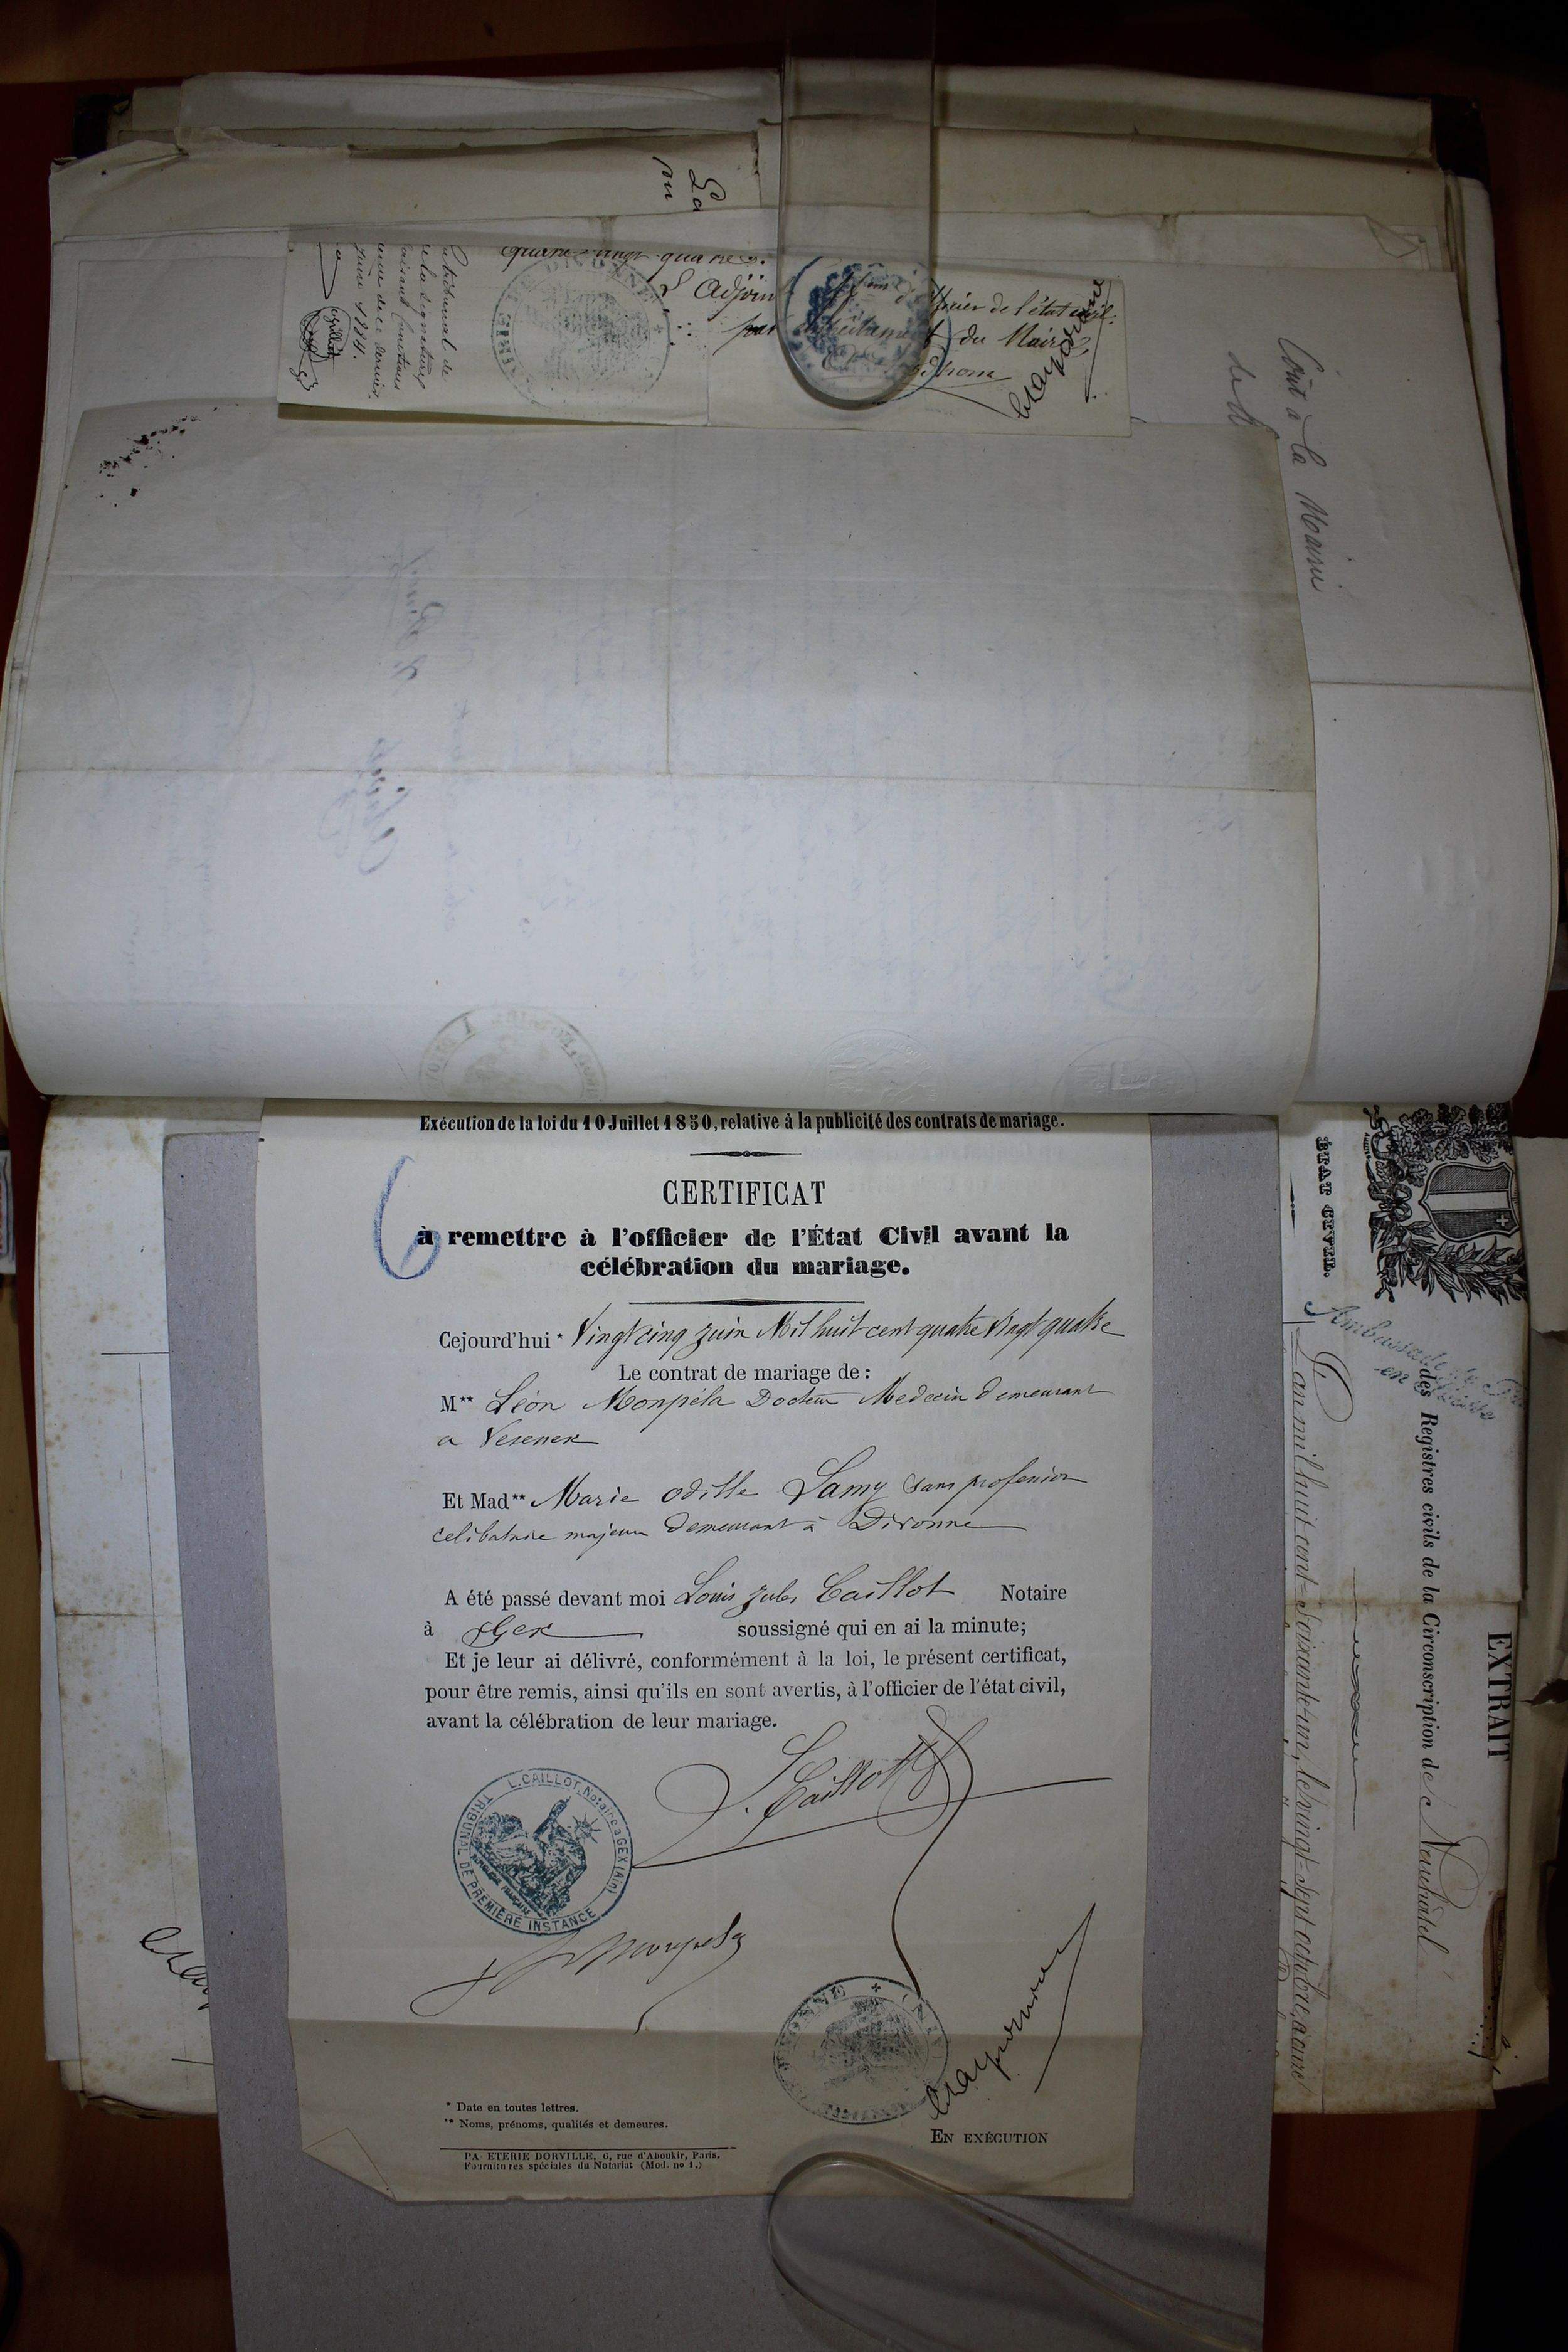 La
quatre vingt quatre.
L'Adjoint
officier de l'état civil
du Maire
tribunal de
la signature
faisant fonctions
juin 1884.
Coût à la Mairie
de
Exécution de la loi du 10 Juillet 1850, relative à la publicité des contrats de mariage.
6
CERTIFICAT
à remettre à l'officier de l'État Civil avant la
célébration du mariage.
Cejourd'hui * Vingt cinq juin Mil huit cent quatre Vingt quatre
Le contrat de mariage de :
M** Léon Monpéla Docteur Medecin demeurant
a Vesenex
Et Mad** Marie odille Lamy sans profession
celibataire majeure demeurant à Divonne
A été passé devant moi Louis Jules Caillot Notaire
à Gex soussigné qui en ai la minute;
Et je leur ai délivré, conformément à la loi, le présent certificat,
pour être remis, ainsi qu'ils en sont avertis, à l'officier de l'état civil,
avant la célébration de leur mariage.
L. Caillot
L. CAILLOT, Notaire à GEX (Ain)
TRIBUNAL DE PREMIÈRE INSTANCE
RÉPUBLIQUE FRANÇAISE
Monpela
* Date en toutes lettres.
** Noms, prénoms, qualités et demeures.
EN EXÉCUTION
PA ETERIE DORVILLE, 6, rue d'Aboukir, Paris.
Fournitures spéciales du Notariat (Mod. no 1.)
ÉTAT CIVIL.
Ambassade de
en Suisse
EXTRAIT
des Registres civils de la Circonscription de Neuchâtel
L'an mil huit cent-soixante-un, le vingt-sept octobre, a